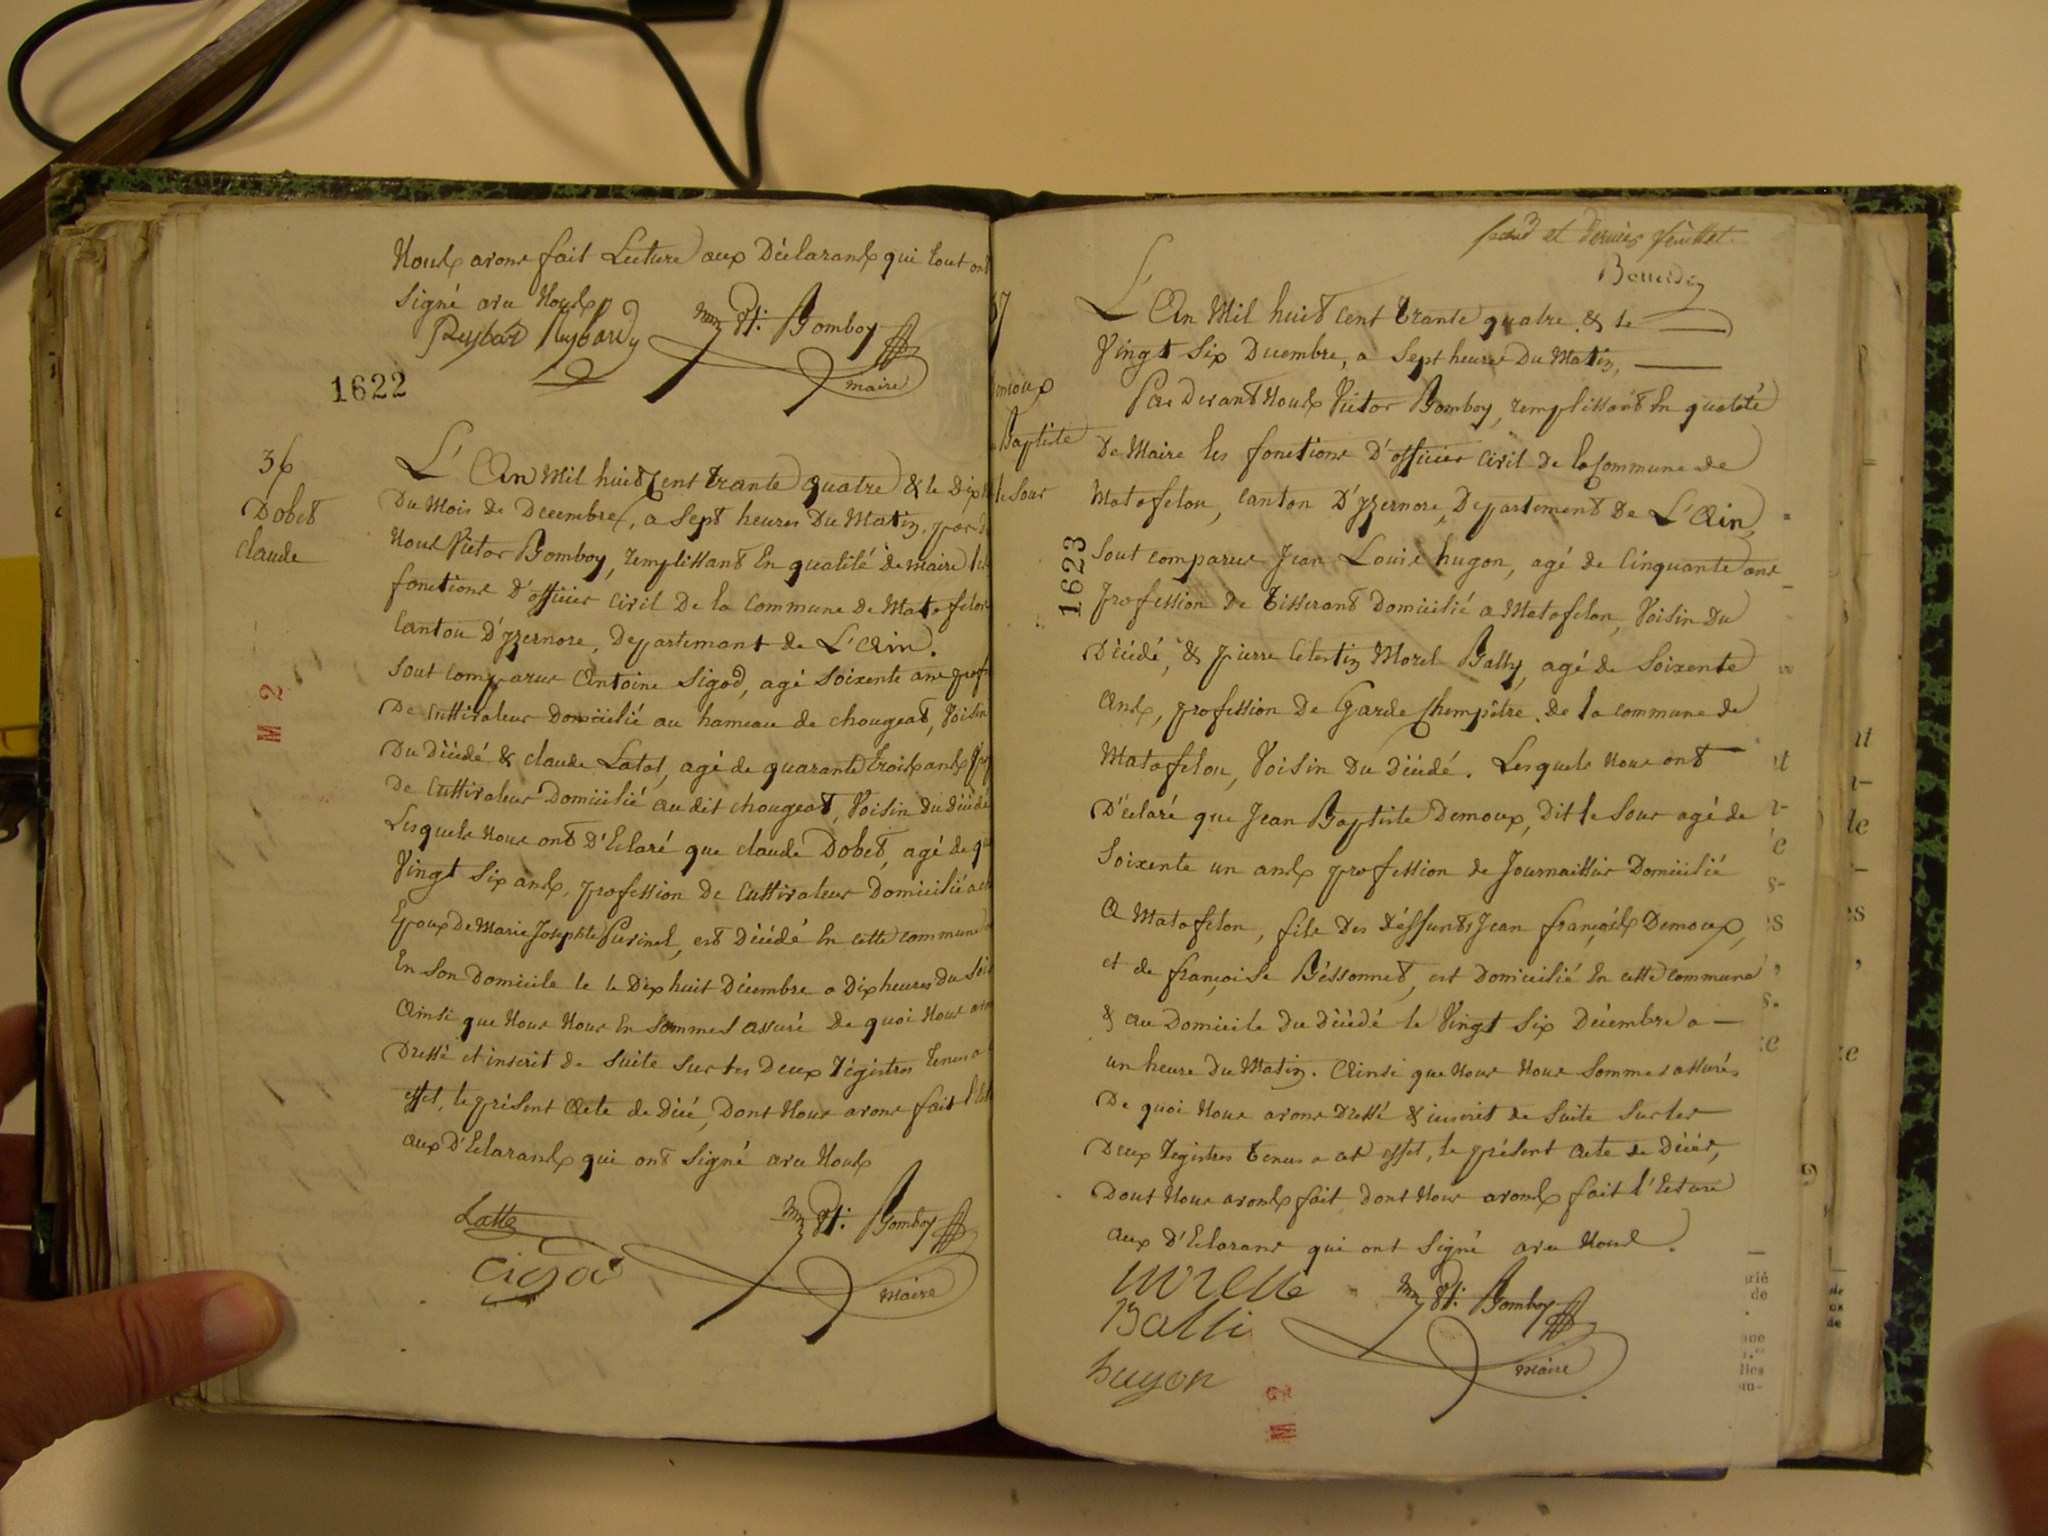 Nous avons fait Lecture aux Déclarans qui tout ont
signé avec Nous
Reybar Reybard
Vor Bomboy
maire
1622
36
Dobet
claude
L'An Mil huit Cent trante quatre & le Dix
Du Mois de Decembre, a Sept heures Du Matin, par
Nous Victor Bomboy, remplissant En qualité de maire les
fonctions D'officier civil De la commune de Matafelon
Canton D'yzernore, Departemant de L'Ain.
Sont comparus Antoine Sigod, agé Soixente ans prof
De Cultivateur Domicilié au hameau de chougeat, Voisin
Du Décédé & claude Latot, agé de quarante trois ans prof
De Cultivateur Domicilié au dit chougeat, Voisin du décédé
Lesquels Nous ont D'Eclaré que claude Dobet, agé de qu
Vingt Six ans, profession De Cultivateur Domicilié a
Epoux De Marie Josephte Perinel, est Décédé En cette commune
En Son Domicile le le Dix huit Décembre a Dix heures Du Soir
Ainsi que Nous Nous En Sommes assuré De quoi Nous avons
Dressé et inscrit de Suite Sur les Deux régistres tenus a
effet, le présent Acte de Décé, Dont Nous avons fait l'Ect
aux D'Eclarans qui ont Signé avec Nous
Latte
Cigod
Vor Bomboy
maire
M 2
Second et dernier feuillet.
37
emoux
Baptiste
le Sour
1623
L'An Mil huit cent trante quatre & le
Vingt Six Decembre, a Sept heures Du Matin,
Par Devant Nous Victor Bomboy, remplissant En qualité
De Maire les fonctions D'officier Civil de la Commune de
Matafelon, Canton D'yzernore, Departement De L'Ain,
Sont comparus Jean Louis hugon, agé de Cinquante ans
profession De tisserant Domicilié a Matafelon, Voisin Du
Décédé, & pierre Celestin Morel Bally, agé de Soixente
Ans, profession De Garde Champêtre De la commune de
Matafelon, Voisin Du Décédé. Lesquels Nous ont
D'éclaré que Jean Baptiste Demoux, Dit le Sour agé de
Soixente un ans profession de Journallier Domicilié
A Matafelon, fils Des Déffunts Jean françois Demoux,
et de françoise Béssonnet, est Domicilié En cette commune
& au Domicile du Décédé le Vingt Six Décembre a
un heure du Matin. Ainsi que Nous Nous Sommes assurés
De quoi Nous avons Dressé & inscrit de Suite Sur les
Deux régistres tenus a cet effet, le présent acte de Décès,
Dont Nous avons fait dont Nous avons fait l'Ecture
aux D'Eclarans qui ont Signé avec Nous.
Morelle
Balli
hugon
Vor Bomboy
maire
M 2